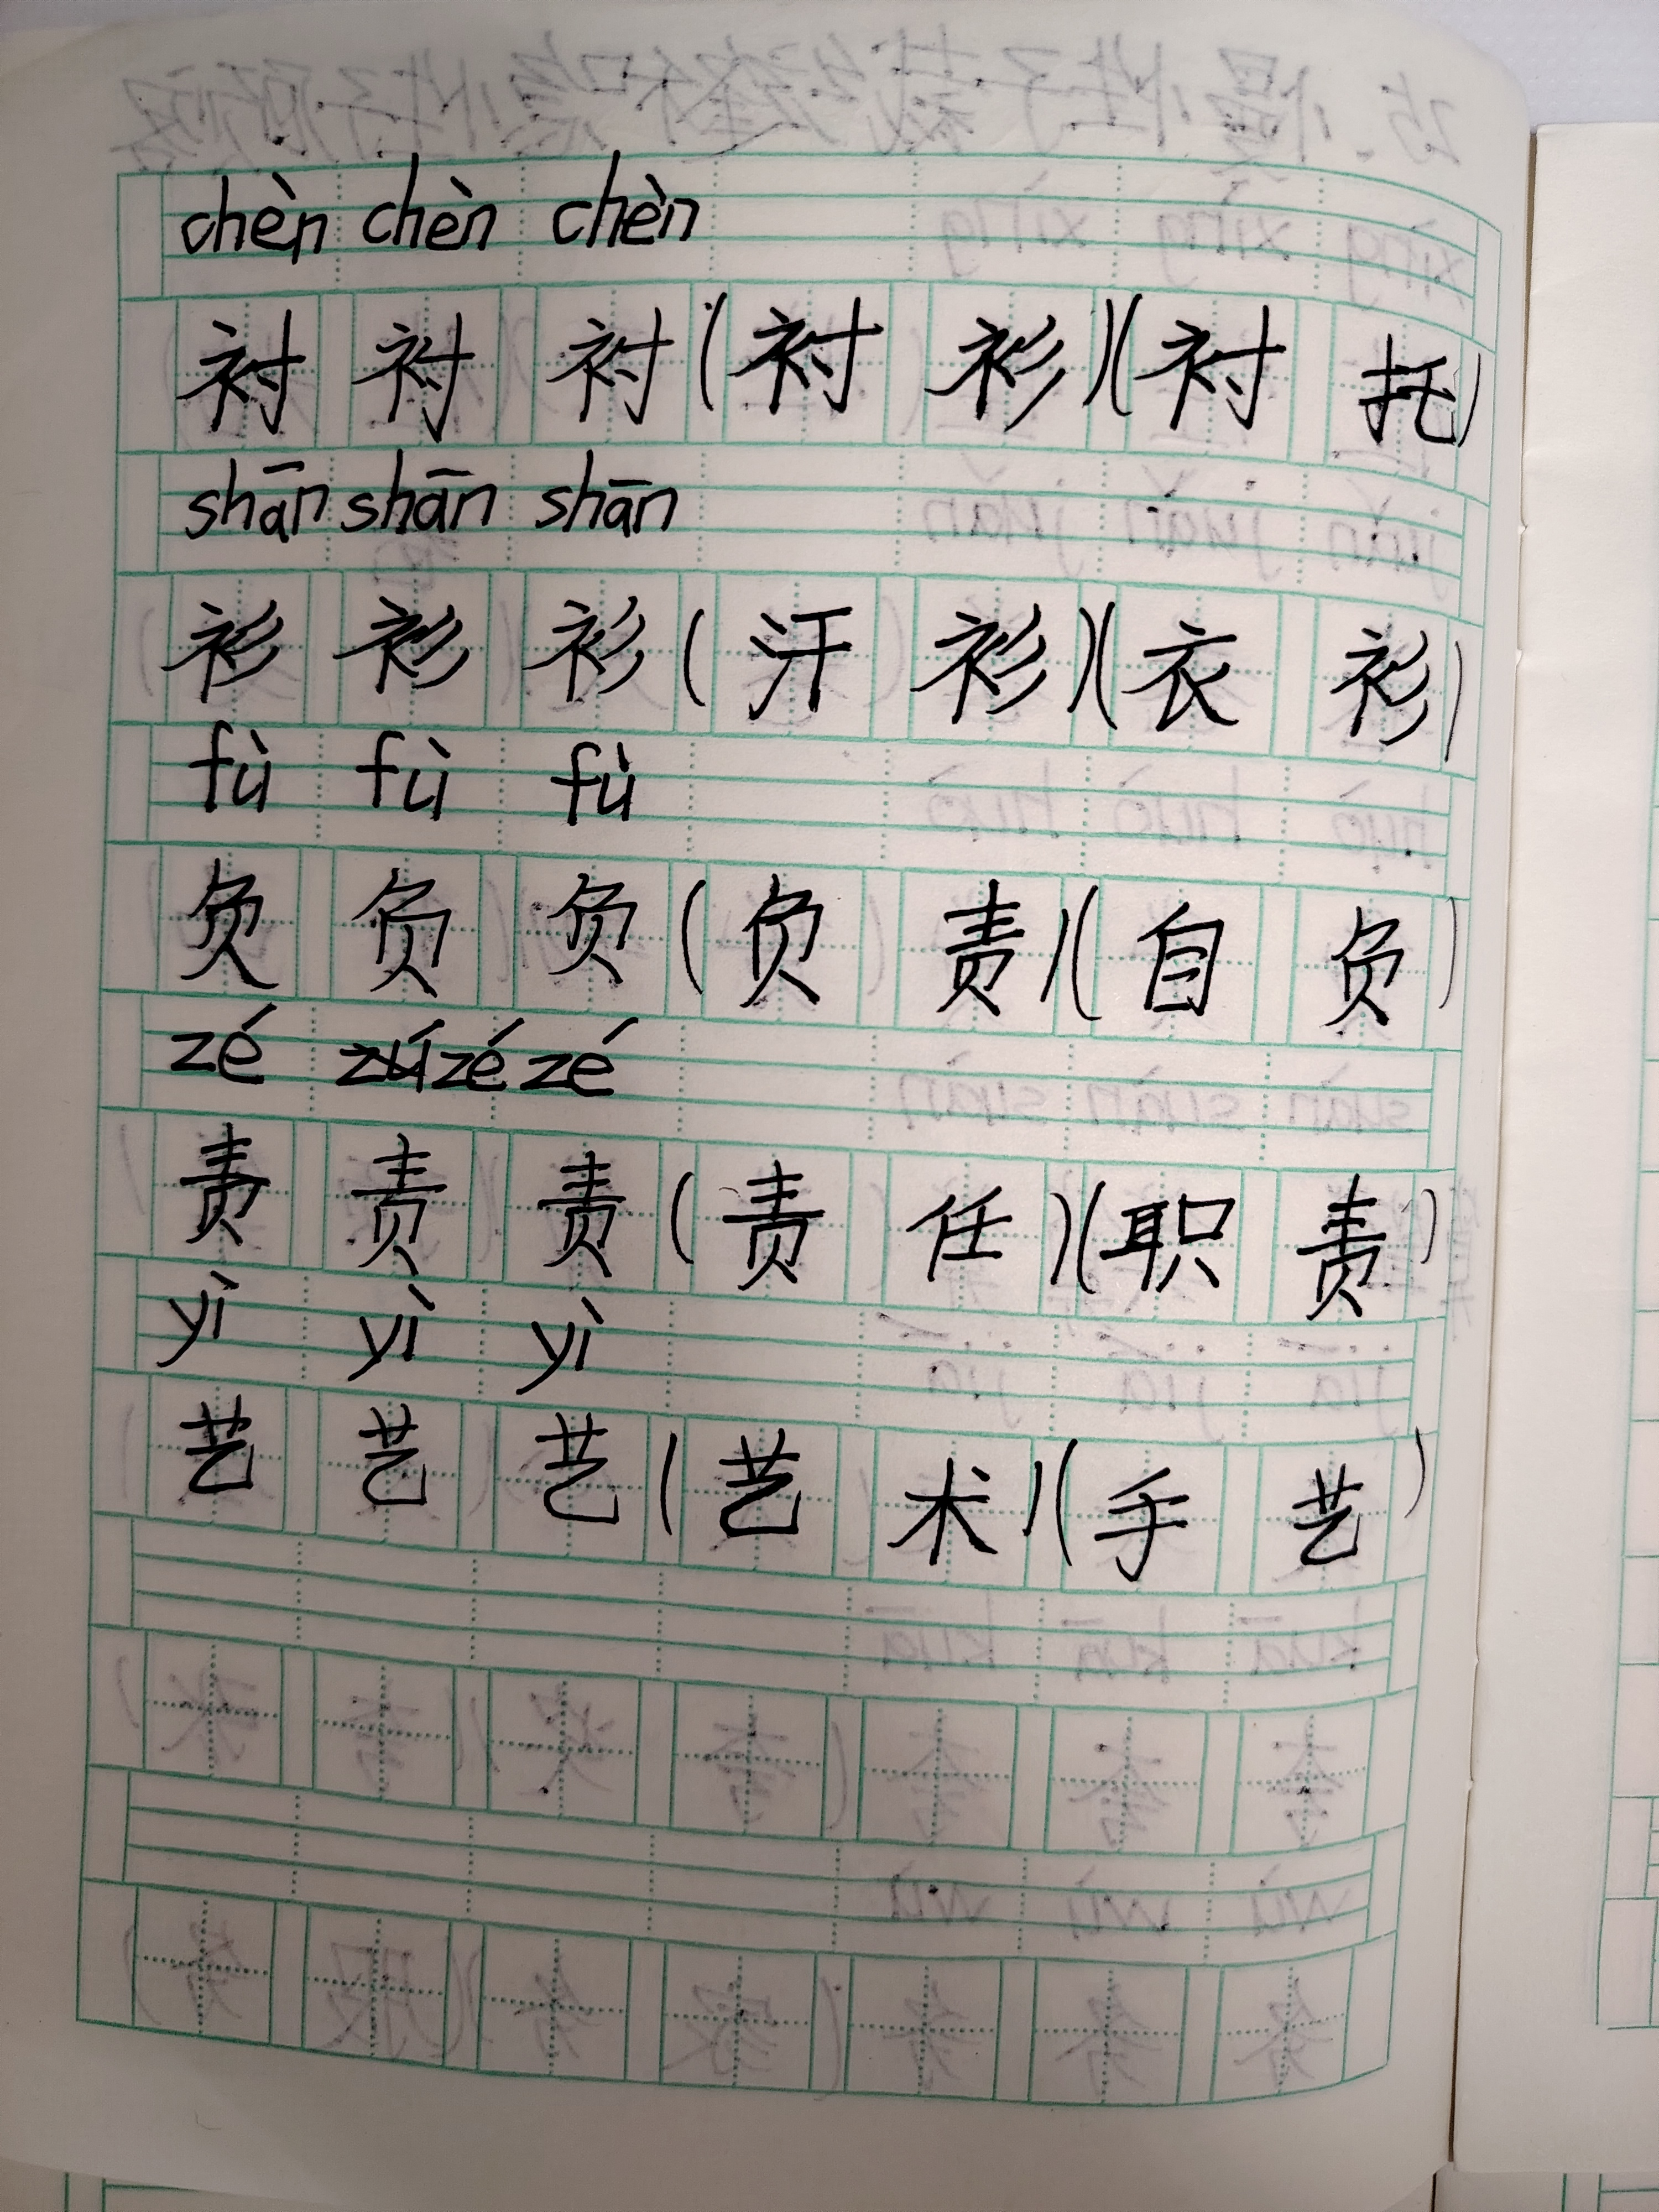 chèn chèn chèn
衬 衬 衬 (衬 衫)(衬 托)
shān shān shān
衫 衫 衫 (汗 衫)(衣 衫)
fù fù fù
负 负 负 (负 责)(自 负)
zé zú zé zé
责 责 责 (责 任)(职 责)
yì yì yì
艺 艺 艺 (艺 术)(手 艺)